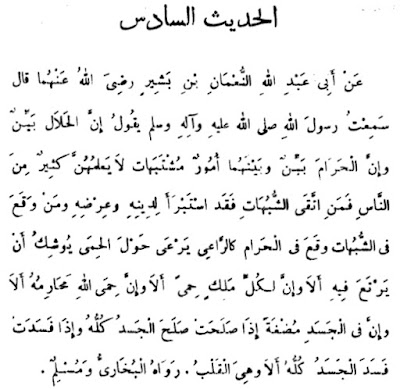 الحديث السادس
عَنْ أَبِى عَبْدِ اللهِ النُّعْمَانِ بْنِ بَشِيرٍ رضِىَ اللهُ عَنْهُما قال
سَمِعْتُ رسولَ اللهِ صلى الله عليه وآلِهِ وسلم يقُولُ إنَّ الحَلَالَ بَيِّنٌ
وإنَّ الحَرَامَ بَيِّنٌ وبَيْنَهُما أُمُورٌ مُشْتَبِهَات لَا يَعلمُهُنَّ كَثِيرٌ مِنَ
النَّاسِ فَمَنِ اتَّقَى الشُّبُهَاتِ فَقَد اسْتَبْرَأَ لِدِينِهِ وعِرْضِهِ ومَنْ وَقَعَ
فى الشُّبُهات وقَعَ فى الحَرام كالرَّاعِى يَرْعَى حَوْلَ الحِمَى يُوشكُ أَنْ
يَرْتَعَ فِيهِ أَلَا وإنَّ لكُلِّ مَلِكٍ حِمىً أَلَا وإنَّ حِمَى اللهِ مَحَارِمُهُ أَلَا
وإنَّ فى الجَسَدِ مُضْغَةً إذَا صَلَحَتْ صَلَحَ الجَسَدُ كُلُّهُ وإذَا فَسَدَتْ
فَسَدَ الجَسَدُ كُلُّهُ أَلَا وهِىَ القَلْبُ . رَوَاهُ البُخَارِىُّ ومُسْلِمٌ .